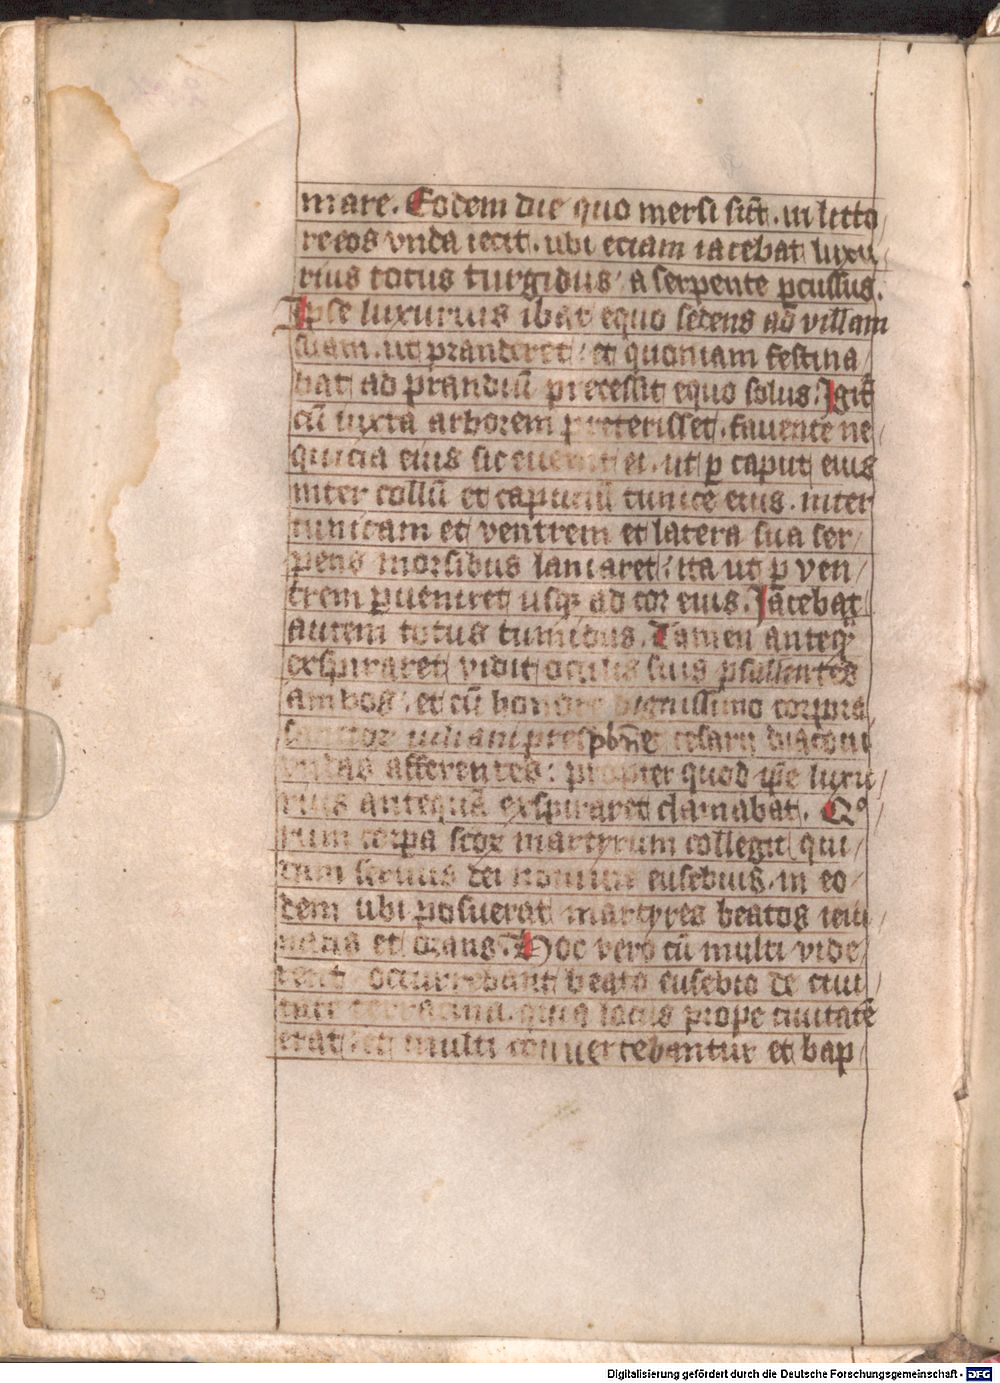 mare. Eodem die quo mersi sūt. in litto/
re eos vnda iecit. ubi eciam iacebat luxu/
rius totus turgidus / a serpente ꝑcussus.
Ipse luxurius ibat equo sedens ad villam
suam. ut pranderet : et quoniam festina/
bat ad prandiū precessit equo solus. Igit̄
cū iuxta arborem preterisset. fauente ne/
quicia eius sic euenit ei. ut ꝑ caput eius
inter collū et caputiū tunice eius. inter
tunicam et ventrem et latera sua ser/
pens morsibus laniaret : ita ut ꝑ ven/
trem ꝑueniret usqꝫ ad cor eius. Jacebat
autem totus tumidus. Tamen anteqͣ
exspiraret vidit oculis suis psallentes
ambos : et cū honore dignissimo corpora
sanctoꝝ iuliani presbr̄i et cesarii diaconi
vndas afferentes : propter quod ip̄e luxu/
rius antequā exspiraret clamabat. Qͦ/
rum corpa scoꝝ martyrum collegit qui/
dam seruus dei nomine eusebius. in eo/
dem ubi posuerat martyres beatos ieiu/
nans et orans. Hoc vero cū multi vide/
rent occurrebant beato eusebio de ciui/
tate terracina. quia locus prope ciuitatē
erat : et multi conuertebantur et bap/
Digitalisierung gefördert durch die Deutsche Forschungsgemeinschaft - DFG